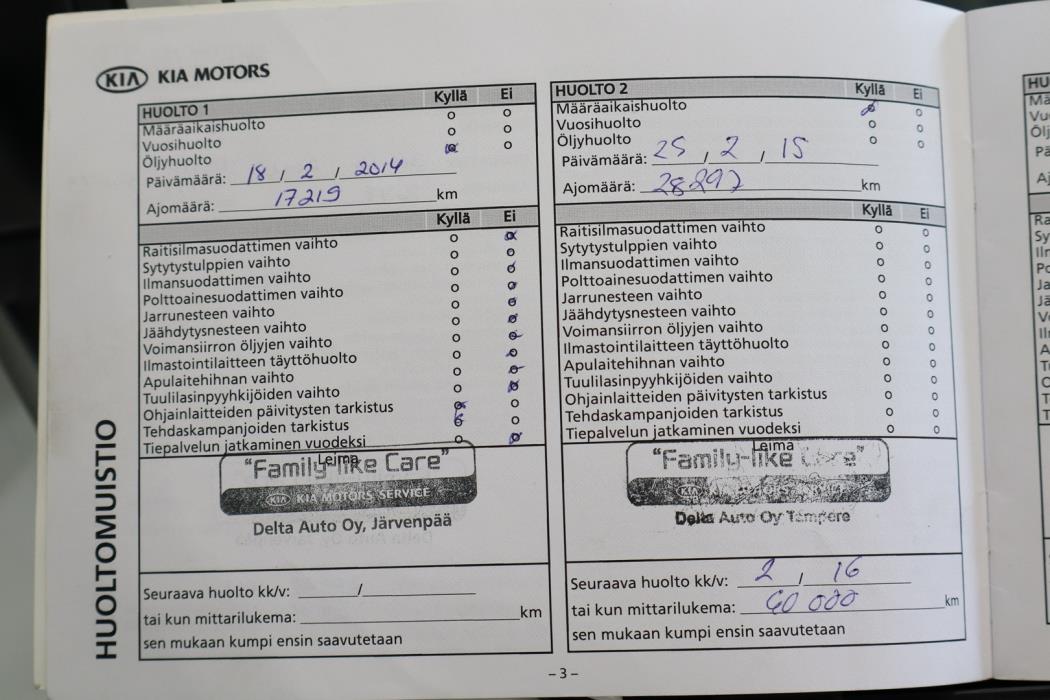 KIA KIA MOTORS
HUOLTO 1 Kyllä Ei
Määräaikaishuolto
Vuosihuolto
Öljyhuolto
Päivämäärä: 18 / 2 / 2014
Ajomäärä: 17219 km
Kyllä Ei
Raitisilmasuodattimen vaihto
Sytytystulppien vaihto
Ilmansuodattimen vaihto
Polttoainesuodattimen vaihto
Jarrunesteen vaihto
Jäähdytysnesteen vaihto
Voimansiirron öljyjen vaihto
Ilmastointilaitteen täyttöhuolto
Apulaitehihnan vaihto
Tuulilasinpyyhkijöiden vaihto
Ohjainlaitteiden päivitysten tarkistus
Tehdaskampanjoiden tarkistus
Tiepalvelun jatkaminen vuodeksi
Leima
"Family-like Care"
KIA KIA MOTORS SERVICE
Delta Auto Oy, Järvenpää
Seuraava huolto kk/v: /
tai kun mittarilukema: km
sen mukaan kumpi ensin saavutetaan
HUOLTO 2 Kyllä Ei
Määräaikaishuolto
Vuosihuolto
Öljyhuolto
Päivämäärä: 25 / 2 / 15
Ajomäärä: 28297 km
Kyllä Ei
Raitisilmasuodattimen vaihto
Sytytystulppien vaihto
Ilmansuodattimen vaihto
Polttoainesuodattimen vaihto
Jarrunesteen vaihto
Jäähdytysnesteen vaihto
Voimansiirron öljyjen vaihto
Ilmastointilaitteen täyttöhuolto
Apulaitehihnan vaihto
Tuulilasinpyyhkijöiden vaihto
Ohjainlaitteiden päivitysten tarkistus
Tehdaskampanjoiden tarkistus
Tiepalvelun jatkaminen vuodeksi
Leima
"Family-like Care"
KIA KIA MOTORS SERVICE
Delta Auto Oy Tampere
Seuraava huolto kk/v: 2 / 16
tai kun mittarilukema: 60 000 km
sen mukaan kumpi ensin saavutetaan
HUOLTOMUISTIO
– 3 –